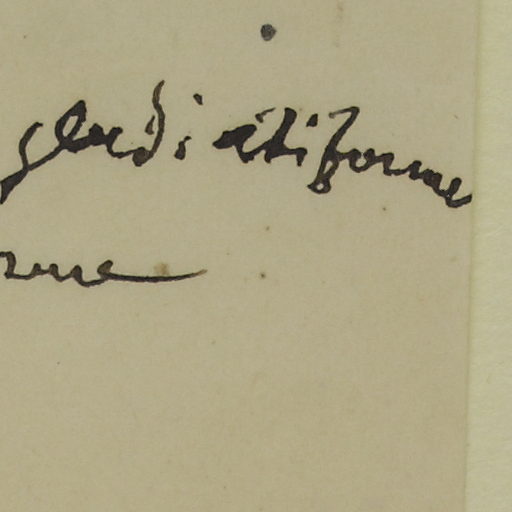 gladiatiforme
rme